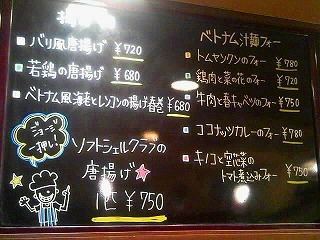 バリ風唐揚げ ¥720
若鶏の唐揚げ ¥680
ベトナム風海老とレンコンの揚げ春巻 ¥680
ジョージ
一押し!
ソフトシェルクラブの
唐揚げ
1匹 ¥750
ベトナム汁麺フォー
トムヤンクンのフォー ¥780
鶏肉と菜の花のフォー ¥720
牛肉と春キャベツのフォー ¥750
ココナッツカレーのフォー ¥780
キノコと空芯菜の
トマト煮込みフォー ¥750